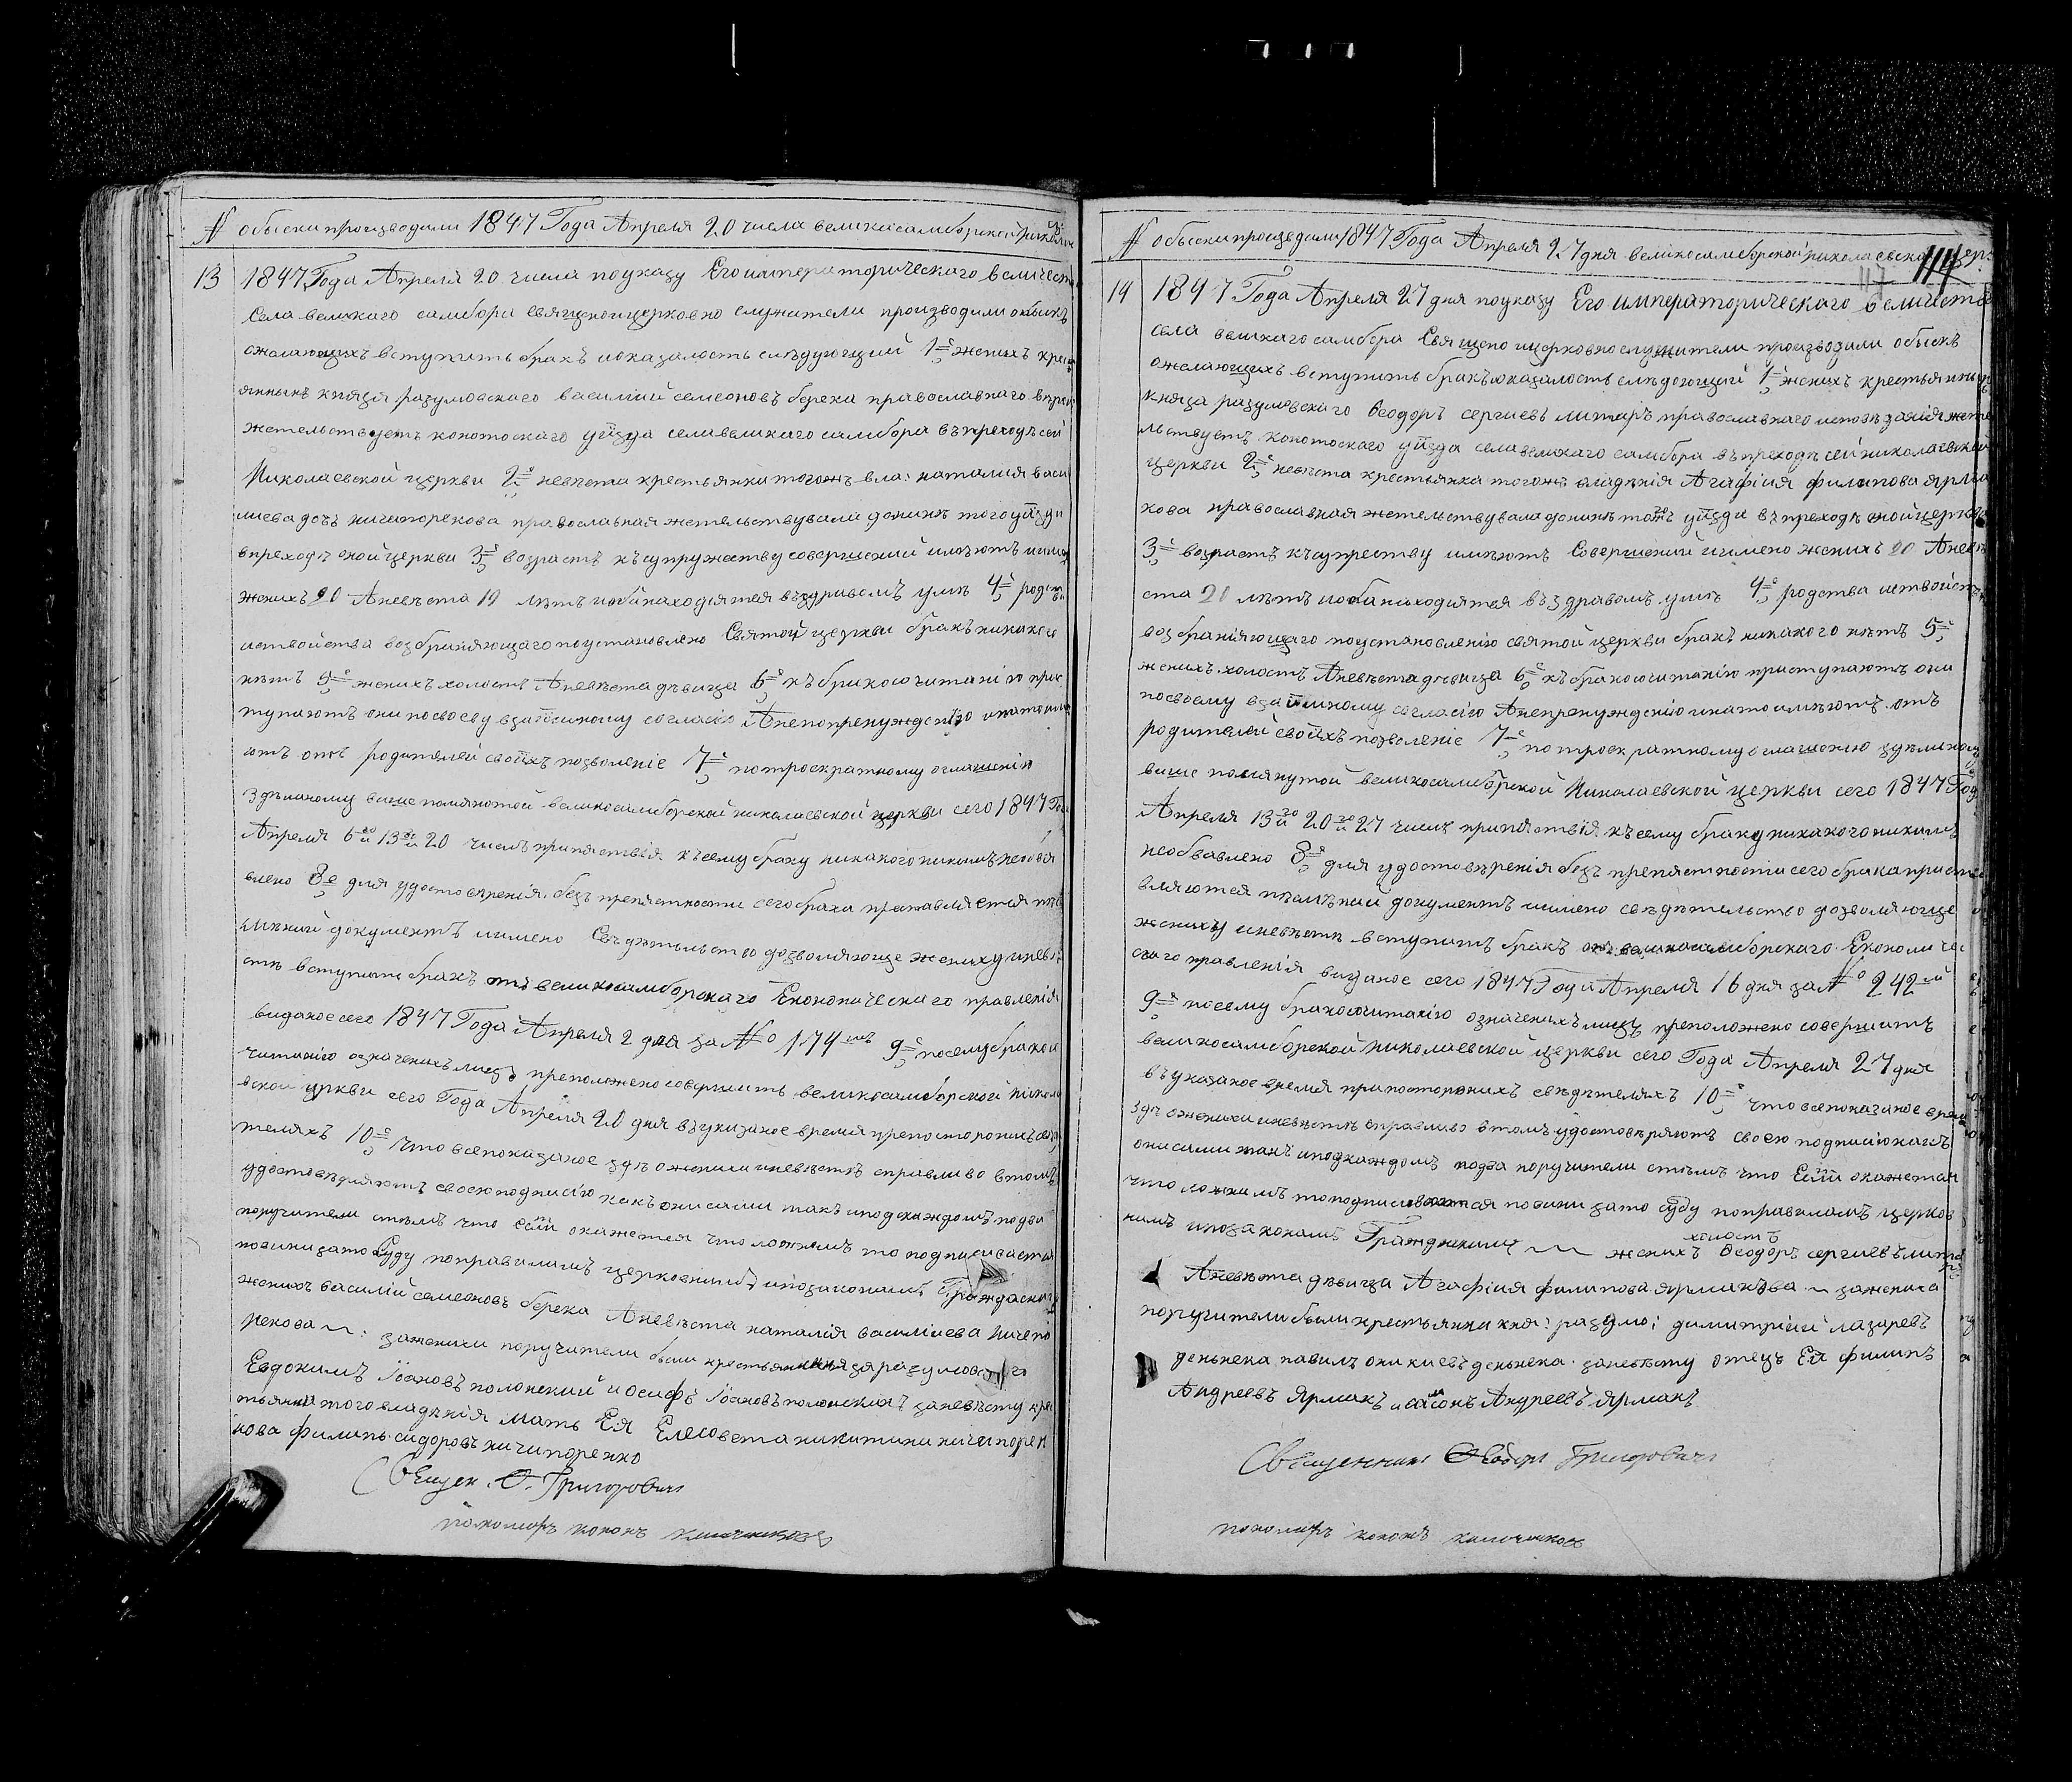 № обыски производили 1847 Года Апреля 20 числа великосамборской
13 1847 Года Апреля 20 числа по указу Его императорическаго величест
Села великаго самбора священоицерковно служители производили обыскъ
ожелающихъ вступить бракъ иоказалость слѣдующий 1е женихъ крест
яннынъ князя разумовскаго василий семеоновъ берека православнаго
жетельствуетъ конотоскаго уйзда села великаго самбора въ преходѣ сей
Николаевской церкви 2е невѣста крестьянка тогожъ вла: наталия васи
лиева дочь ничипорекова православная жетельствувала донинѣ того уйзда
впреходѣ оной церкви 3е возрастъ къ супружеству совершений имѣютъ имено
женихъ 20 Аневѣста 19 лѣтъ иоба находятся въ здравомъ умѣ 4е родств
исвойства возбраняющаго поустановлено Святой церкви бракъ никакого
нѣтъ 5е женихъ холостъ Аневѣста дѣвица 6е къ бракосочитанію прис
тупаютъ они посвоеву взайминому согласію Анепопренуждению инатоимѣ
ютъ отъ родителей свойхъ позволеніе 7е потроекратному оглашенію
здѣланому више помянотой великосамборской николаевской церкви сего 1847 Года
Апреля 6го и 13го и 20 числъ припятствія къ сему браку никакого никимъ необъя
влено 8е для удостовѣренія безъ препятности сего брака преставляется
сменний документъ имено Свѣдѣтельство дозволяюще жениху иневѣ
стѣ вступить бракъ отъ великосамборскаго Економическаго правленія
виданое сего 1847 Года Апреля 2 дня за № 174 9е посему бракосо
читанію означенихъ лицъ преположено совершить великосамборской никола
вской церкви сего Года Апреля 20 дня въ указаное время препостороннихъ свѣдѣ
теляхъ 10е что всепоказаное здѣ ожениси иневѣстѣ справливо втомъ
удостовѣряютъ своеюподписію какъ они сами такъ иподкаждомъ подва
поручители стѣмъ что если окажется что ложнимъ то подписивается
повини зато Суду поправиламъ церковнимъ ипозаконамъ Граждански
женихъ василий семеоновъ берека Аневѣста наталія василиева ничепо
рекова : зажениха поручители были крестьяни князя разумовскаго
Евдокимъ Іоановъ полонский и осифъ Іоановъ полонский заневѣсту кре
тьянка того владѣнія мать Ея Елесовета никитина ничипорен
кова филипъ сидоровъ ничипоренко
Священ. Ѳ. Григоровичь
пономарь кононъ
№ обыски процедали 1847 Года Апреля 27 дня великосамборской николаевской церк
114
14 1847 Года Апреля 27 дня поуказу Его императорическаго величества
села великаго самбора Священо ицерковнослужители производили обыскъ
ожелающихъ вступить бракъ иоказалость слѣдующий 1е женихъ крестьянинъ
князя разумовскаго Ѳеодоръ сергиевъ литаръ православнаго исповѣданія жете
льствуетъ конотоскаго уйзда села великаго самбора въ преходѣ сей николаевской
церкви 2е невѣста крестьянка тогожъ владѣнія Агафия филипова ярма
кова православная жетельствувала донинѣ тогожъ уйзда въ преходѣ оной церкви
3е возрастъ къ супреству имѣютъ Совершений имено женихъ 20 Аневѣ
ста 20 лѣтъ иоба находятся въ здравомъ умѣ 4е родства исвойства
возбраняющаго поустановленію святой церкви бракъ никакого нѣтъ 5е
женихъ холостъ Аневѣста дѣвица 6е къ бракосочитанію приступаютъ они
посвоему взайминому согласію Анепренуждению инатоимѣютъ отъ
родителей свойхъ позволеніе 7е потроекратному оглашенію здѣланому
више помянутой великосамборской Николаевской церкви сего 1847 Года
Апреля 13го 20го и 27 числъ припятствія къ сему браку никакого никимъ
необъявлено 8е для удостовѣренія безъ препятности сего брака преста
вляются документъ имено свѣдѣтельство дозволяюще
жениху иневѣстѣ вступитъ бракъ отъ великосамборскаго Економичес
скаго правленія виданое сего 1847 Года Апреля 16 дня за № 242
9е посему бракосочитанію означенихъ лицъ преположено совершитъ
великосамборской николаевской церкви сего Года Апреля 27 дня
въ указаное время припосторонихъ свѣдѣтеляхъ 10е что всепоказаное
здѣ оженихи иневѣстѣ справливо втомъ удостовѣряютъ своею подписію какъ
они сами такъ иподкаждомъ подва поручители стѣмъ что Если окажется
что ложнимъ то подписивается повини зато суду поправиламъ церков
нимъ ипозаконамъ Гражданскимъ женихъ холостъ Ѳеодоръ сергиевъ литаръ
Аневѣста дѣвица Агафия филипова ярмакова зажениха
поручители были крестьянни кня: разумо: димитрий лазаревъ
деньнека павилъ деньнека. заневѣсту отецъ Ей филипъ
Андреевъ Ярмакъ и Андреевъ Ярмакъ
Священникъ Ѳеодоръ Григоровичь
пономарь кононъ